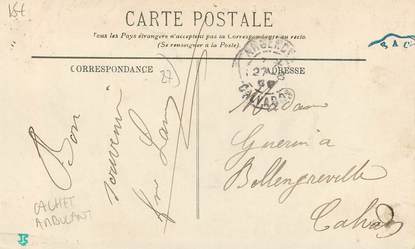 CARTE POSTALE
Tous les Pays étrangers n'acceptent pas la Correspondance au recto
(Se renseigner à la Poste)
CORRESPONDANCE
ADRESSE
27
CALVADOS
Bon
souvenir
Madame
Guerin à
Bellengreville
Calvados
CACHET
AMBULANT